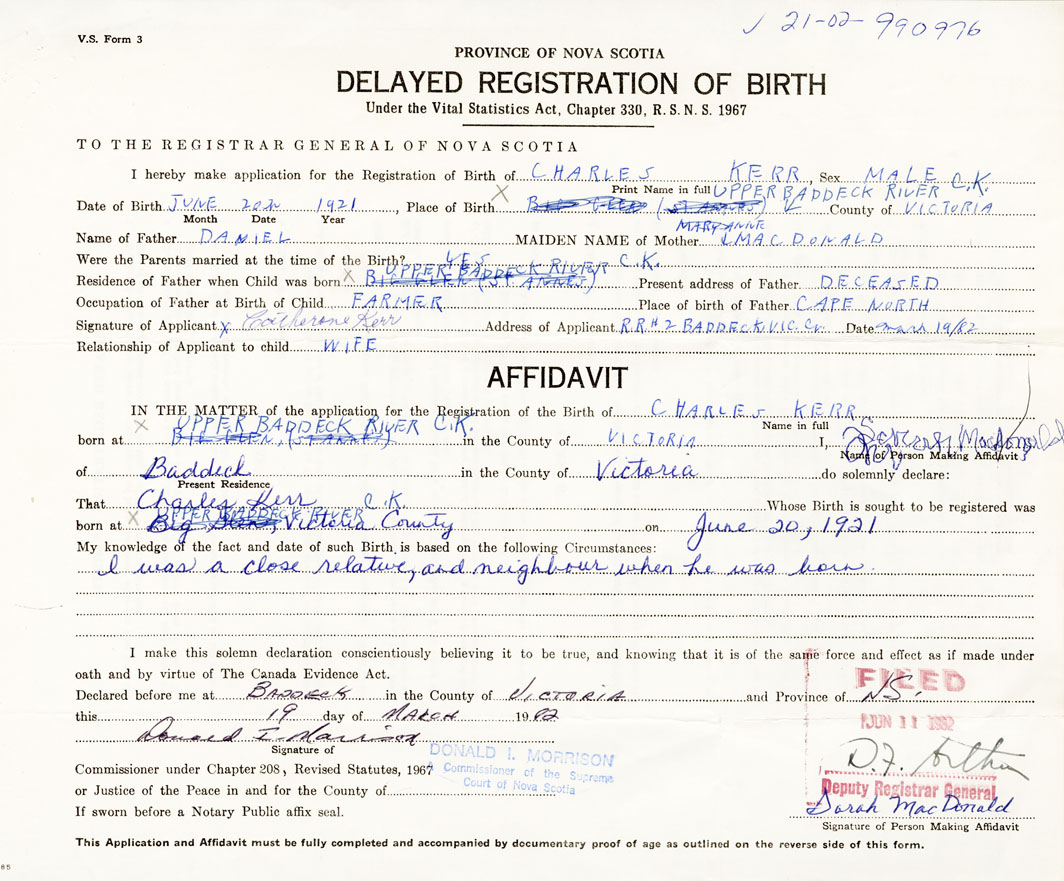 21-02-990976
V.S. Form 3
PROVINCE OF NOVA SCOTIA
DELAYED REGISTRATION OF BIRTH
Under the Vital Statistics Act, Chapter 330, R. S. N. S. 1967
TO THE REGISTRAR GENERAL OF NOVA SCOTIA
I hereby make application for the Registration of Birth of CHARLES KERR, Sex MALE
Print Name in full UPPER BADDECK RIVER C.K.
Date of Birth JUNE 20th 1921, Place of Birth X BIG GLEN (ST ANNES) County of VICTORIA
Month Date Year
MARY ANNE
Name of Father DANIEL MAIDEN NAME of Mother MACDONALD
Were the Parents married at the time of the Birth? YES
UPPER BADDECK RIVER C.K.
Residence of Father when Child was born X BIG GLEN (ST ANNES) Present address of Father DECEASED
Occupation of Father at Birth of Child FARMER Place of birth of Father CAPE NORTH
Signature of Applicant X Catherine Kerr Address of Applicant R.R.#2 BADDECK, VIC. Co. Date March 19/82
Relationship of Applicant to child WIFE
AFFIDAVIT
IN THE MATTER of the application for the Registration of the Birth of CHARLES KERR
Name in full
UPPER BADDECK RIVER C.K.
born at X BIG GLEN, (ST ANNES) in the County of VICTORIA I, MacDonald
Name of Person Making Affidavit
of Baddeck in the County of Victoria do solemnly declare:
Present Residence
That Charles Kerr C.K. Whose Birth is sought to be registered was
UPPER BADDECK RIVER
born at X Big Glen, Victoria County on June 20, 1921
My knowledge of the fact and date of such Birth is based on the following Circumstances:
I was a close relative, and neighbour when he was born.
I make this solemn declaration conscientiously believing it to be true, and knowing that it is of the same force and effect as if made under
oath and by virtue of The Canada Evidence Act.
Declared before me at BADDECK in the County of VICTORIA and Province of N.S.
FILED
this 19 day of MARCH 1982
JUN 11 1982
Donald I. Morrison
Signature of
DONALD I. MORRISON
A Commissioner of the Supreme
Court of Nova Scotia
Commissioner under Chapter 208, Revised Statutes, 1967
or Justice of the Peace in and for the County of
If sworn before a Notary Public affix seal.
D.F.
Deputy Registrar General
Sarah MacDonald
Signature of Person Making Affidavit
This Application and Affidavit must be fully completed and accompanied by documentary proof of age as outlined on the reverse side of this form.
85